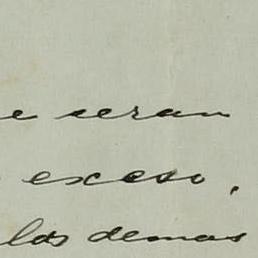 e seran
exceso,
los demas